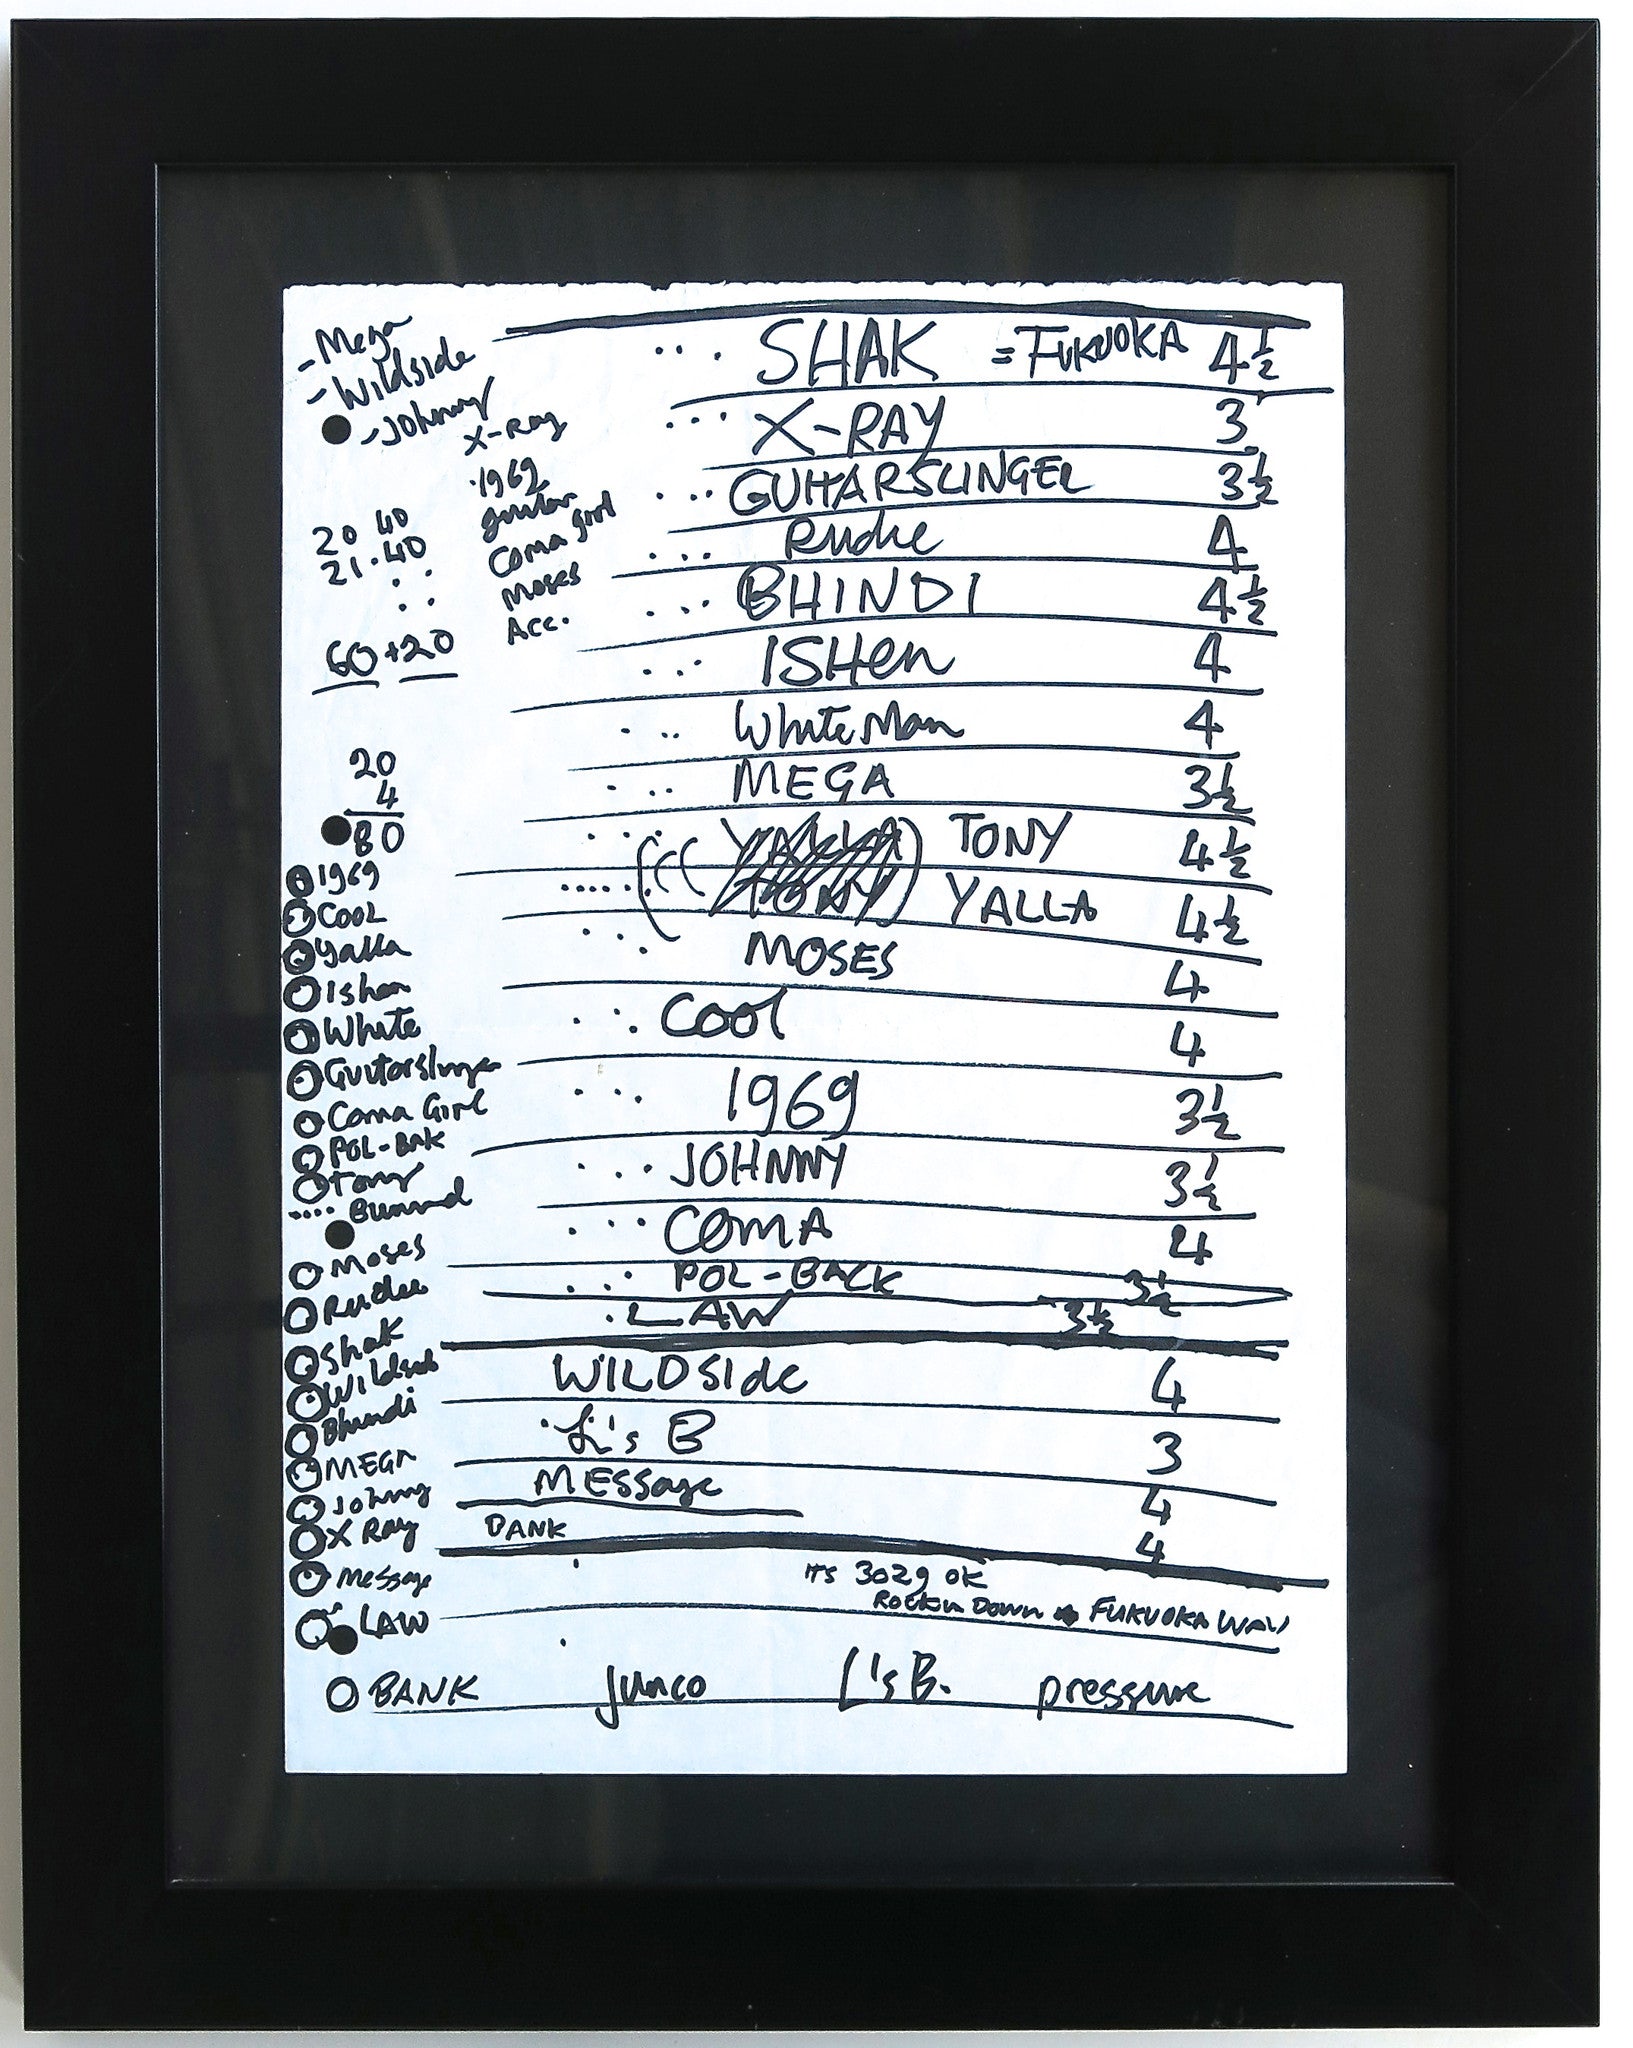 - Mega
- Wildside
- Johnny
X-Ray
1969
guitar
Coma girl
Moses
Acc.
20 40
21.40
60 + 20
20
4
80
1969
COOL
Yalla
Ishen
White
Guitarslinger
Coma Girl
POL-BAK
Tony
Moses
Rudie
Shak
Bhindi
MEGA
Johnny
X Ray
Message
LAW
... SHAK = FUKUOKA 4 1/2
... X-RAY 3
... GUITARSLINGER 3 1/2
... Rudie 4
... BHINDI 4 1/2
... ISHEN 4
... White Man 4
... MEGA 3 1/2
YALLA TONY 4 1/2
TONY YALLA 4 1/2
... MOSES 4
... COOL 4
... 1969 3 1/2
... JOHNNY 3 1/2
... COMA 4
... POL-BACK 3 1/2
. LAW 3 1/2
WILDSIDE 4
L's B 3
MESSage 4
BANK 4
ITS 3029 OK
Rockin DOWN FUKUOKA WAY
BANK junco L's B. pressure